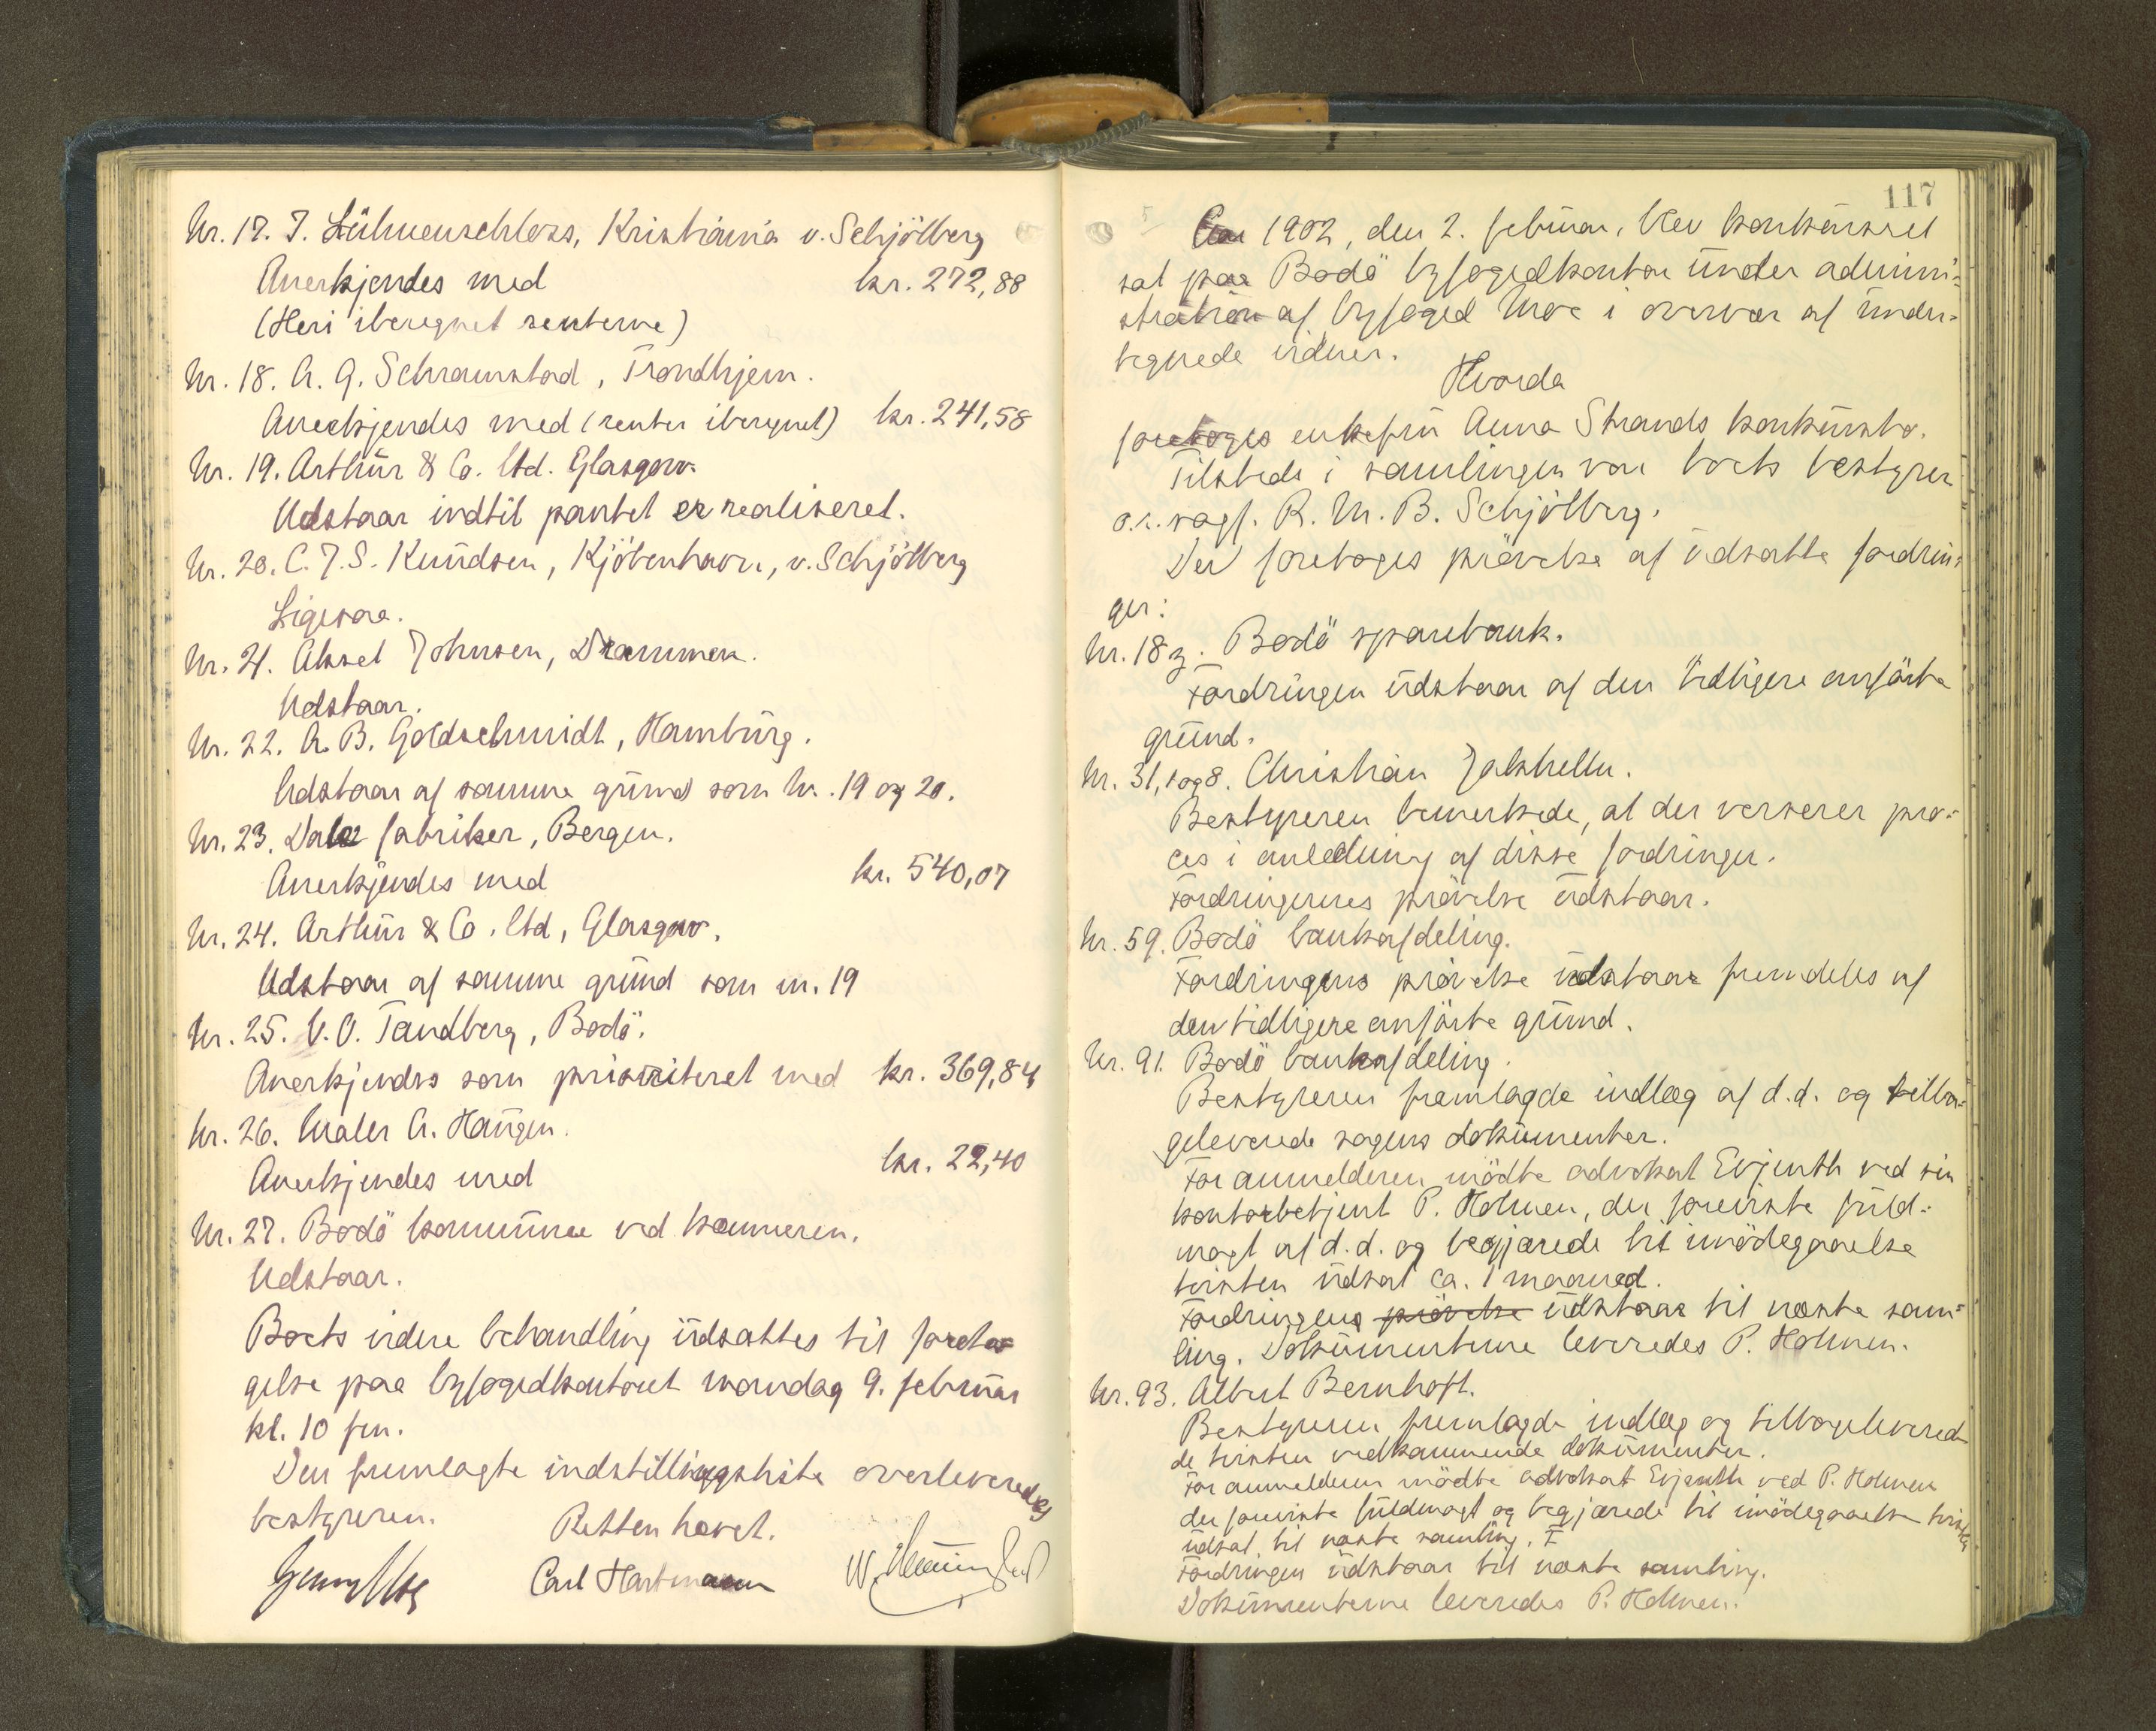 Nr. 17. J. Lühnenschloss, Kristiania v. Schjölberg
Anerkjendes med kr. 272,88
(Heri iberegnet renterne)
Nr. 18. A. G. Schramstad, Trondhjem.
Anerkjendes med (renter iberegnet) kr. 241,58
Nr. 19. Arthur & Co. ltd. Glasgow.
Udstaar indtil pantet er realiseret.
Nr. 20. C. J. S. Knudsen, Kjöbenhavn, v. Schjölberg
Ligesaa.
Nr. 21. Aksel Johnsen, Drammen.
Udstaar.
Nr. 22. A. B. Goldschmidt, Hamburg.
Udstaar af samme grund som nr. 19 og 20.
Nr. 23. Dale fabriker, Bergen.
Anerkjendes med kr. 540,07
Nr. 24. Arthur & Co. ltd, Glasgow.
Udstaar af samme grund som nr. 19
Nr. 25. V. O. Tandberg, Bodö.
Anerkjendes som prioriteret med kr. 369,84
Nr. 26. Maler A. Haugen.
Anerkjendes med kr. 22,40
Nr. 27. Bodö kommune ved kæmneren.
Udstaar.
Boets videre behandling udsattes til foreta-
gelse paa byfogedkontoret mandag 9. februar
kl. 10 fm.
Den fremlagte indstillingsliste overleveredes
bestyreren. Retten hævet.
Carl Hartmann
117
1902, den 2. februar, blev konkursret
sat paa Bodö byfogedkontor under admini-
stration af byfoged Moe i overvær af under-
tegnede vidner.
Hvorda
foretoges enkefru Anna Strands konkursbo.
Tilstede i samlingen var boets bestyrer
o.r.sagf. R. M. B. Schjölberg.
Der foretoges prövelse af udsatte fordrin-
ger:
Nr. 18 . Bodö sparebank.
Fordringen udstaar af den tidligere anförte
grund.
Nr. 31, 1 og 8. Christian Jakhelln.
Bestyreren bemerkede, at der verserer pro-
ces i anledning af disse fordringer.
Fordringernes prövelse udstaar.
Nr. 59. Bodö bankafdeling.
Fordringens prövelse udstaar fremdeles af
den tidligere anförte grund.
Nr. 91. Bodö bankafdeling.
Bestyreren fremlagde indlæg af d.d. og tilba-
geleverede sagens dokumenter.
For anmelderen mödte advokat Evjenth ved sin
kontorbetjent P. Holmen, der foreviste fuld-
magt af d.d. og begjærede til imödegaaelse
tvisten udsat ca. 1 maaned.
Fordringens prövelse udstaar til næste sam-
ling. Dokumenterne leveredes P. Holmen.
Nr. 93. Albert Bernhoft.
Bestyreren fremlagde indlæg og tilbageleverede
de tvisten vedkommende dokumenter.
For anmelderen mödte advokat Evjenth ved P. Holmen
der foreviste fuldmagt og begjærede til imödegaaelse tvisten
udsat til næste samling.
Fordringen udstaar til næste samling.
Dokumenterne leveredes P. Holmen.